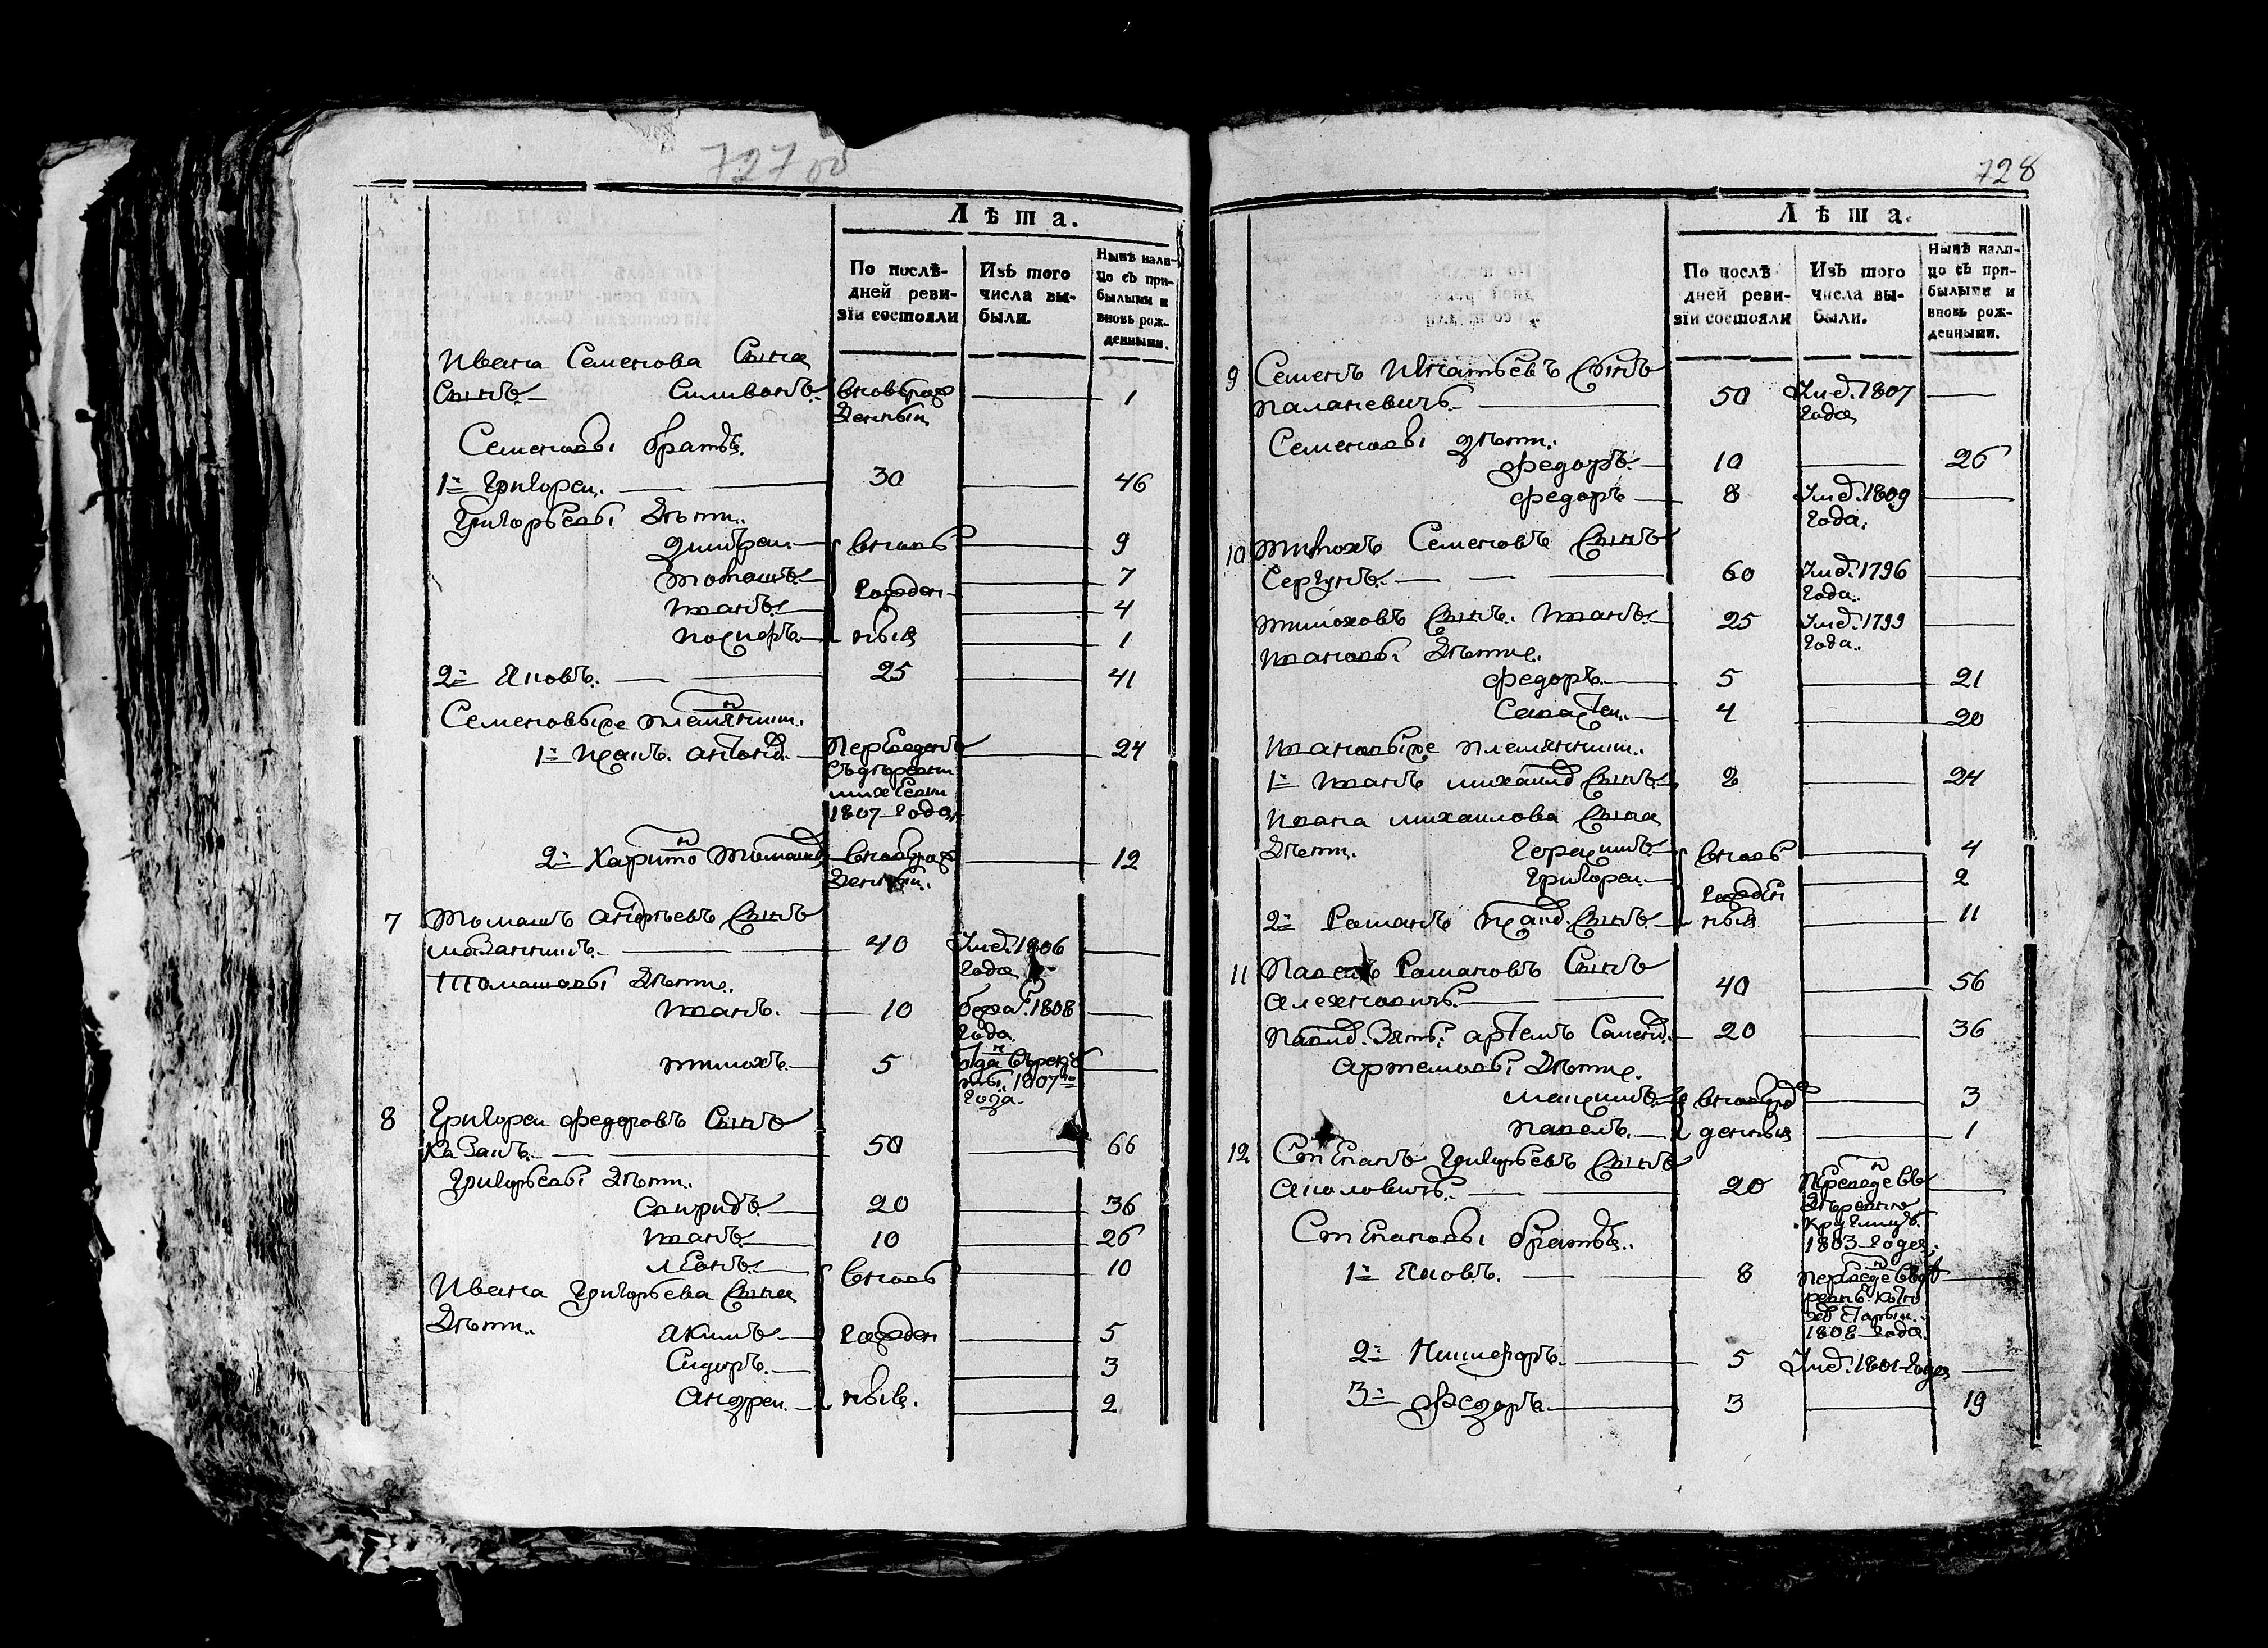 727об
Лѣта.
По послѣ-
дней реви-
зіи состояли
Изъ того
числа вы-
были.
Нынѣ нали-
цо съ при-
былыми и
вновь рож-
денными.
Ивана Семенова Сына
Сынъ. Силиванъ. вновьрож 1
денныи
Семеновы братья.
1й Григореи. 30 46
Григорьевы дѣти.
Дмитреи вновь 9
Томашъ 7
рожден
Иванъ 4
ныя 1
2й Яковъ. 25 41
Семеновыхе племянники.
1й Иванъ. Антонов. Переведенъ 24
1807 года
2й Харитон Томашов вноворож 12
денныи.
7 Томашъ Андрѣевъ Сынъ
40 Умер. 1806
года
Томашовы дѣти.
Иванъ. 10 бежал. 1808
года.
Тимохъ. 5 отдан врекру
ты. 1807го
года.
8 Григореи Федоровъ Сынъ
Казакъ. 50 66
Григорьевы дѣти.
Спиридъ. 20 36
Иванъ 10 26
Леонъ. вновь 10
Ивана Григорьева Сына
дѣти.
Якимъ рожден 5
Сидоръ. 3
Андреи. ныя. 2
728
Лѣта.
По послѣ-
дней реви-
зіи состояли
Изъ того
числа вы-
были.
Нынѣ нали-
цо съ при-
былыми и
вновь рож-
денными.
9 Семенъ Игнатьевъ Сынъ
Паланевичъ. 50 Умер. 1807
года
Семеновы дѣти.
Федоръ. 10 26
Федоръ 8 Умер. 1809
года.
10 Тимохъ Семеновъ Сынъ
Сергунъ. 60 Умер. 1796
года.
Тимоховъ Сынъ. Иванъ 25 Умер. 1799
года.
Ивановы дѣти.
Федоръ. 5 21
4 20
Ивановыхе племянники.
1й Иванъ Михаилов Сынъ 8 24
Ивана Михаилова Сына
дѣти. Герасимъ вновь 4
Григореи. 2
рожден
2й Романъ Иванов. Сынъ ныя 11
11 Павелъ Романовъ Сынъ
Алехновичъ. 40 56
Павлов. Зять. Артемъ Семенов. 20 36
Артемовы дѣти.
Максимъ вноворож 3
Павелъ. денныя 1
12 Степанъ Григорьевъ Сынъ
Асаловичъ. 20 Преведен въ
деревню
Круглицъ
1803 года.
Степановы братья.
1й Яковъ. 8 переведен въде
ревню
1808 года.
2й Никифоръ. 5 Умер. 1801 года
3й Федоръ. 3 19